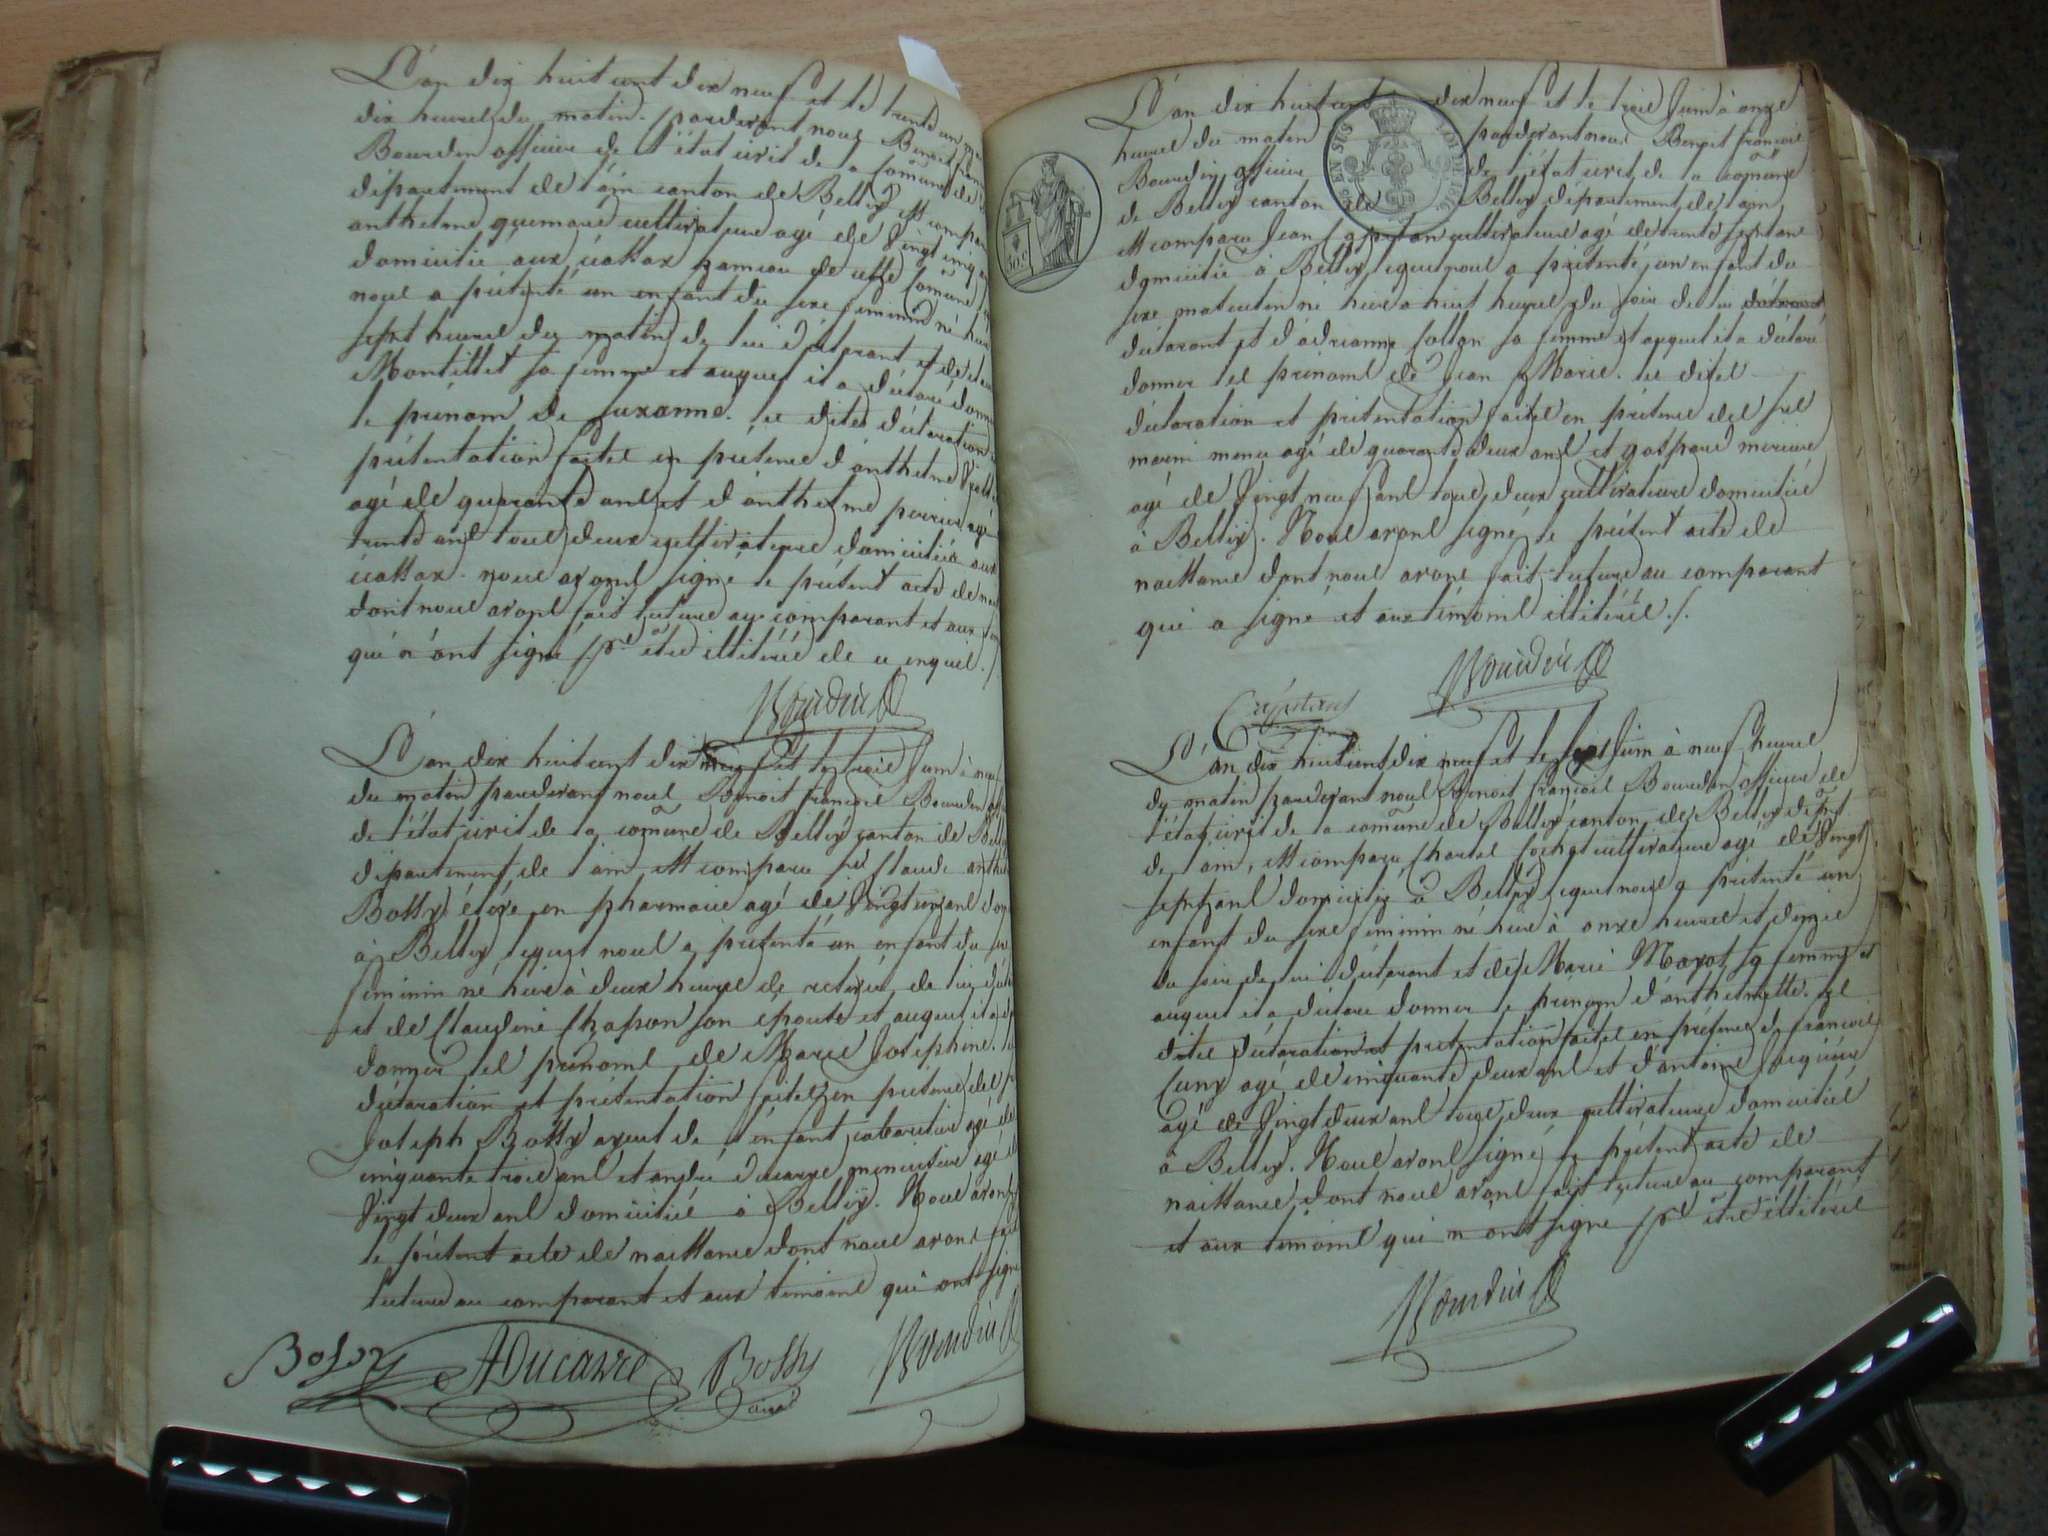 L'an dix huit cent dix neuf et le trente un mai
dix heures du matin. pardevant nous Benoit
Bourdin officier de l'état civil de la com̃une de
département de l'ain canton de Belley est comparu
anthelme cultivateur agé de vingt cinq
domicilié aux hameau de cette com̃une
nous a présenté un enfant du sexe feminin né hier
sept heures du matin de lui déclarant et de
Montillet sa femme et auquel il a déclaré donner
le prénom de Suzanne. les dites déclaration
présentation faites en présence d'anthelme
agé de quarante ans et d'anthelme perrier agé
trente ans tous deux cultivateurs domiciliés aux
nous avons signé le présent acte de
dont nous avons fait lecture au comparant et aux
qui n'ont signé pr être illitérés de ce enquis./.
Bourdin
L'an dix huit cent dix neuf et le trois Juin à
du matin pardevant nous Benoit françois Bourdin
de l'état civil de la com̃une de Belley canton de
département de l'ain est comparu sr Claude
Bossy élève en pharmacie agé de vingt un ans
à Belley lequel nous a présenté un enfant du
feminin né hier à deux heures de relevée, de lui
et de Claudine Chapson son épouse et auquel il a
donner les prénoms de Marie Josephine.
déclaration et présentation faites en présence des
Joseph Bossy ayeul de l'enfant cabaretier agé de
cinquante trois ans et andré ducarre menuisier agé
vingt deux ans domiciliés à Belley. Nous avons
le présent acte de naissance dont nous avons fait
lecture au comparant et aux témoins qui ont signé
Bossy ADucarre Bossy Bourdin
L'an dix huit cent dix neuf et le trois Juin à onze
heures du matin pardevant nous Benoit françois
Bourdin officier de l'état civil de la com̃une
de Belley canton de Belley département de l'ain
est comparu Jean Crépitan cultivateur agé de trente sept ans
domicilié à Belley lequel nous a présenté un enfant du
sexe masculin né hier à huit heures du soir de lui
déclarant et d'adrianne Collon sa femme et auquel il a déclaré
donner les prénoms de Jean Marie. les dites
déclaration et présentation faites en présence des srs
marin agé de quarante deux ans et gaspard mercier
agé de vingt neuf ans tous deux cultivateurs domiciliés
à Belley. Nous avons signé le présent acte de
naissance dont nous avons fait lecture au comparant
qui a signé et aux témoins illitérés./.
Bourdin
Crépitan
L'an dix huit cent dix neuf et le sept Juin à neuf heures
du matin pardevant nous Benoit françois Bourdin officier de
l'état civil de la com̃une de Belley canton de Belley
de l'ain, est comparu Charles cultivateur agé de vingt
sept ans domicilié à Belley lequel nous a présenté un
enfant du sexe feminin né hier à onze heures et demie
du soir de lui déclarant et de Marie sa femme et
auquel il a déclaré donner le prénom d'anthelmette. les
dites déclaration et présentation faites en présence de françois
Cuny agé de cinquante deux ans et d'antoine
agé de vingt deux ans tous deux cultivateurs domiciliés
à Belley. Nous avons signé le présent acte de
naissance, dont nous avons fait lecture au comparant
et aux témoins qui n'ont signé pr être illitérés
Bourdin